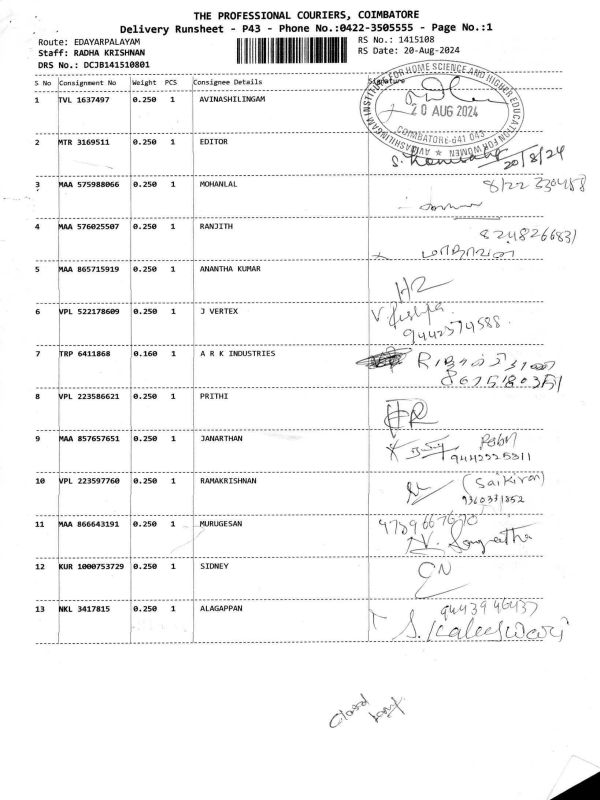 THE PROFESSIONAL COURIERS, COIMBATORE
Delivery Runsheet - P43 - Phone No.:0422-3505555 - Page No.:1
Route: EDAYARPALAYAM RS No.: 1415108
Staff: RADHA KRISHNAN RS Date: 20-Aug-2024
DRS No.: DCJB141510801
S No Consignment No Weight PCS Consignee Details Signature
1 TVL 1637497 0.250 1 AVINASHILINGAM
AVINASHILINGAM INSTITUTE FOR HOME SCIENCE AND HIGHER EDUCATION FOR WOMEN ★
20 AUG 2024
COIMBATORE-641 043
2 MTR 3169511 0.250 1 EDITOR
20/8/24
3 MAA 575988066 0.250 1 MOHANLAL
8122 330488
4 MAA 576025507 0.250 1 RANJITH
8248266831
5 MAA 865715919 0.250 1 ANANTHA KUMAR
6 VPL 522178609 0.250 1 J VERTEX
9442574588
7 TRP 6411868 0.160 1 A R K INDUSTRIES
8 VPL 223586621 0.250 1 PRITHI
9 MAA 857657651 0.250 1 JANARTHAN
9442525311
10 VPL 223597760 0.250 1 RAMAKRISHNAN
(Saikiran)
9360331852
11 MAA 866643191 0.250 1 MURUGESAN
Sangeetha
12 KUR 1000753729 0.250 1 SIDNEY
13 NKL 3417815 0.250 1 ALAGAPPAN
9443946437
S. Kaleeswari